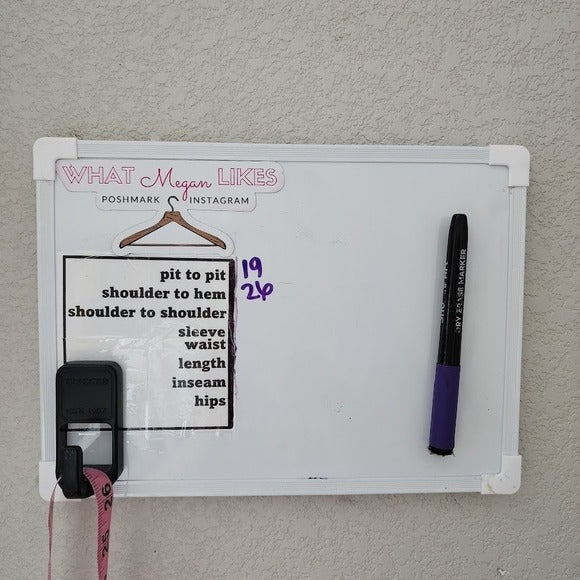 WHAT Megan LIKES
POSHMARK INSTAGRAM
pit to pit 19
shoulder to hem 26
shoulder to shoulder
sleeve
waist
length
inseam
hips
DRY ERASE MARKER
26
25